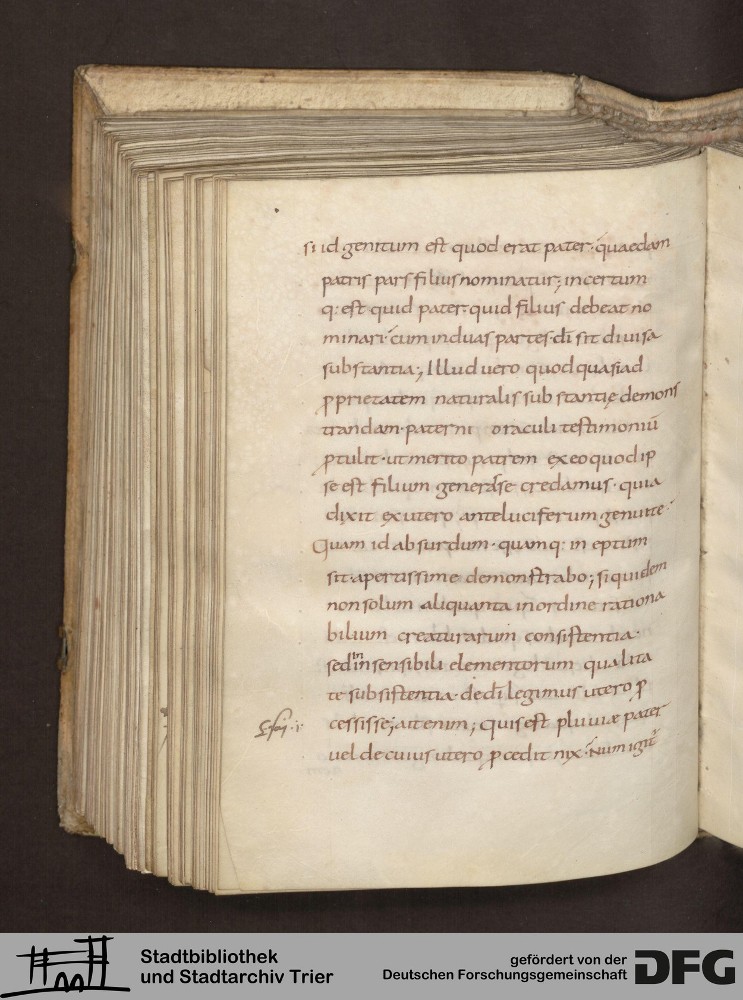 si id genitum est quod erat pater· quaedam
patris pars filius nominatur; incertum
q: est quid pater· quid filius debeat no
minari· cum in duas partes· dī sit diuisa
substantia; Illud uero quod quasi ad
ꝓprietatem naturalis substantię demons
trandam· paterni oraculi testimoniū
ꝓtulit· ut merito patrem ex eo quod ip
se est filium generasse credamus· quia
dixit ex utero ante luciferum genui te·
Quam id absurdum· quamq: ineptum
sit· apertissime demonstrabo; siquidem
non solum aliquanta in ordine rationa
bilium creaturarum consistentia·
sed in insensibili elementorum qualita
te subsistentia· de dī legimus utero ꝓ
cessisse; ait enim; quis est pluuiæ pater
uel de cuius utero ꝓcedit nix· Num igit̄
Stadtbibliothek
und Stadtarchiv Trier
gefördert von der
Deutschen Forschungsgemeinschaft
DFG